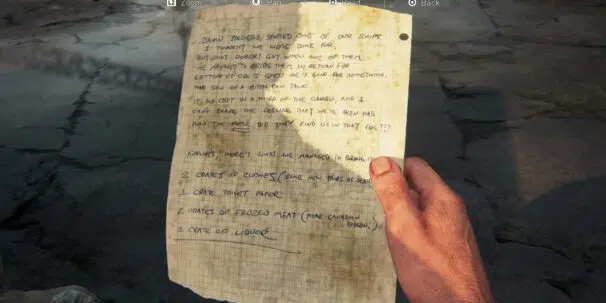 Zoom Pan Read Back
SPOTTED ONE OF OUR SHIPS.
I THOUGHT WE WERE DONE FOR,
BUT THAT ROBERT GUY KNEW ONE OF THEM.
HE MANAGED TO BRIBE THEM IN RETURN FOR
LETTING US GO. I GUESS HE'S GOOD FOR SOMETHING,
THE SON OF A BITCH CAN TALK.
IT DID COST US A THIRD OF THE CARGO, AND I
CAN'T SHAKE THE FEELING THAT WE'VE BEEN HAD
HOW THE HELL DID THEY FIND US IN THAT FOG!!!
ANYWAYS, HERE'S WHAT WE MANAGED TO BRING
2 CRATES OF CLOTHES, ( NEW PAIRS OF
1 CRATE TOILET PAPER
2 CRATES OF FROZEN MEAT (MORE CANADIAN
CRATE OF LIQUOR